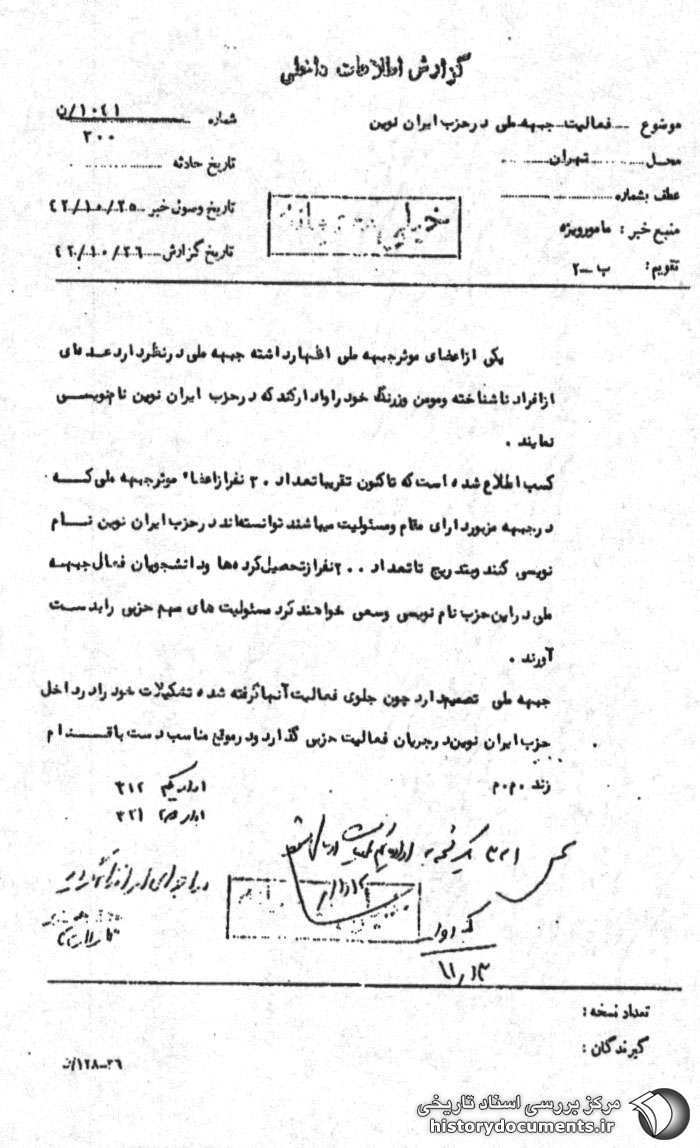 گزارش اطلاعات داخلی
موضوع فعالیت جبهه ملی در حزب ایران نوین
محل تهران
عطف بشماره
منبع خبر : مامور ویژه
تقویم : ب-۲
شماره
۳۰۰
تاریخ حادثه
تاریخ وصول خبر ۴۲/۱۰/۲۵
تاریخ گزارش ۴۲/۱۰/۲۶
خیلی محرمانه
یکی از اعضای موثر جبهه ملی اظهار داشته جبهه ملی در نظر دارد عده‌ای
از افراد ناشناخته و مومن و زرنگ خود را وادار کند که در حزب ایران نوین نام‌نویسی
نمایند .
کسب اطلاع شده است که تاکنون تقریبا تعداد ۲۰ نفر از اعضاء موثر جبهه ملی که
در جبهه مزبور دارای مقام و مسئولیت میباشند توانسته‌اند در حزب ایران نوین نام
نویسی کنند و بتدریج تا تعداد ۲۰۰ نفر از تحصیل کرده‌ها و دانشجویان فعال جبهه
ملی در این حزب نام نویسی وسعی خواهند کرد مسئولیت های مهم حزبی را بدست
آورند .
جبهه ملی تصمیم دارد چون جلوی فعالیت آنها گرفته شده تشکیلات خود را در داخل
حزب ایران نوین در جریان فعالیت حزبی گذارد و در موقع مناسب دست باقدام
زند م.م.
۳۱۲
۳۲۱
تعداد نسخه :
گیرندگان :
۱۲۸-۳۶/ن
مرکز بررسی اسناد تاریخی
historydocuments.ir